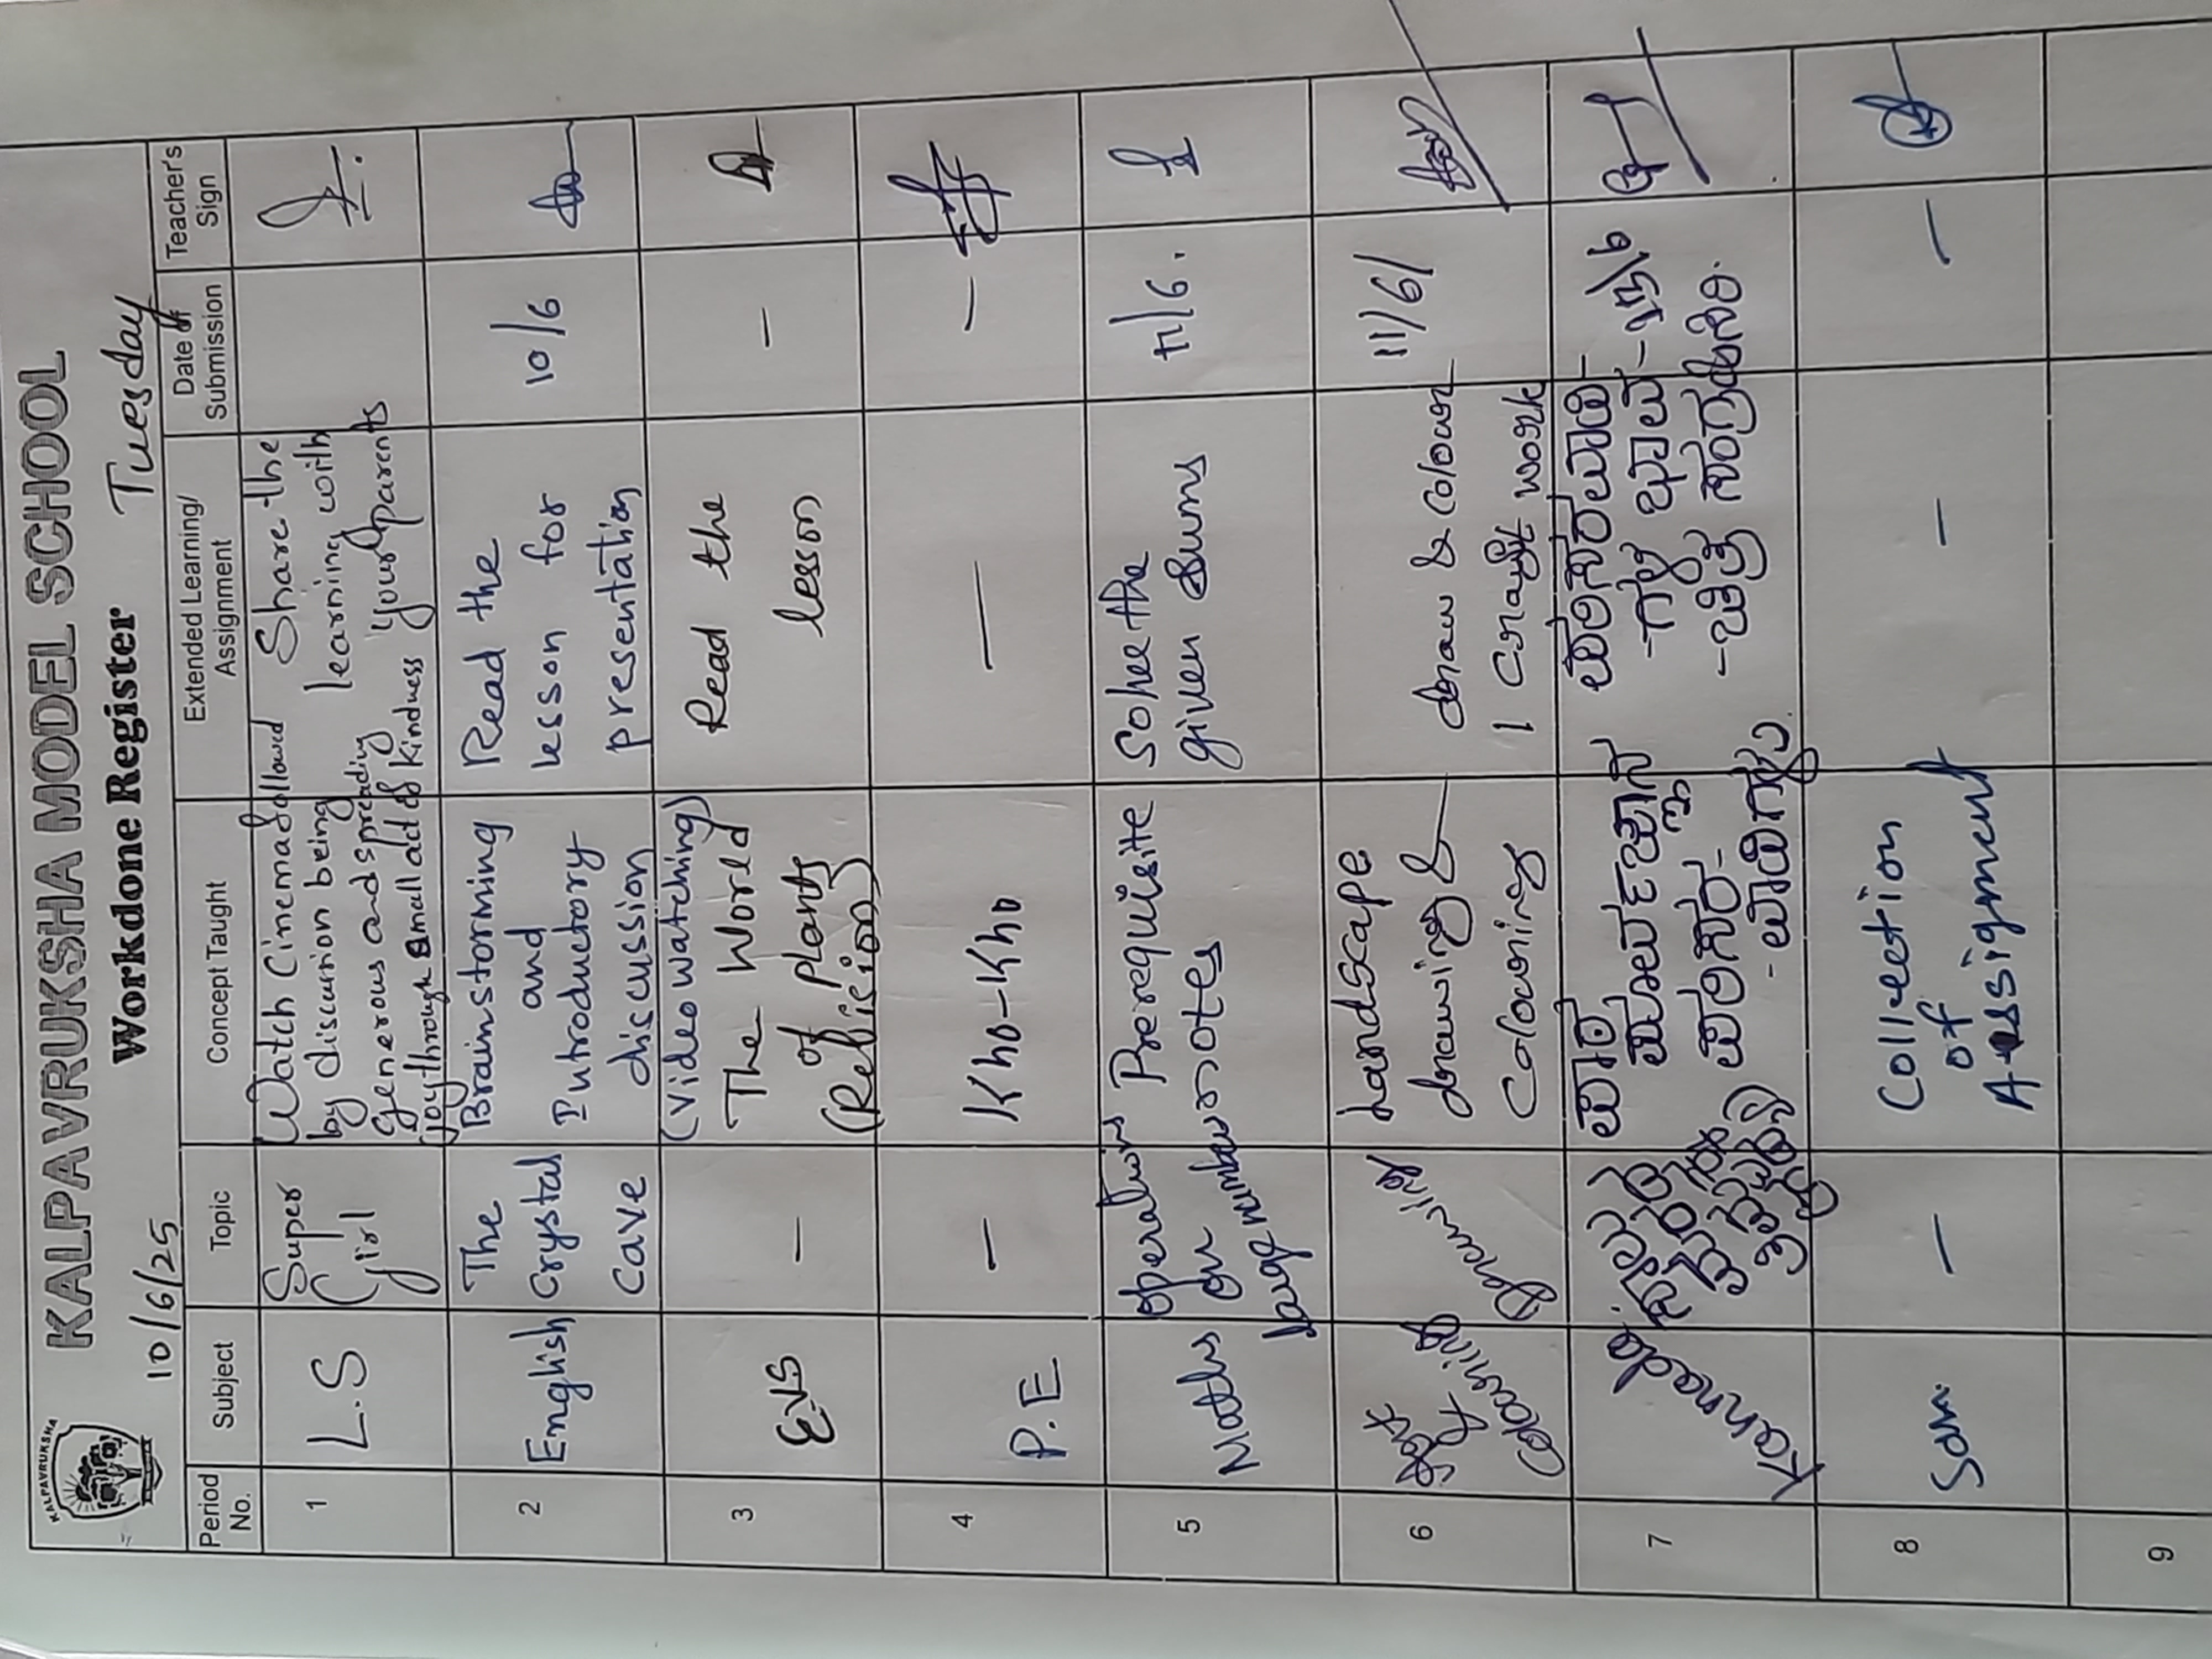 KALPAVRUKSHA
KALPAVRUKSHA MODEL SCHOOL
10/6/25 Workdone Register Tuesday
Period No. Subject Topic Concept Taught Extended Learning/ Assignment Date of Submission Teacher's Sign
1 L.S Super Girl Watch Cinema followed by discussion being generous and spreading joy through small act of kindness Share the learning with your parents
2 English The Crystal Cave Brainstorming and Introductory discussion (video watching) Read the lesson for presentation 10/6
3 EVS - The World of plants (Revision) Read the lesson -
4 P.E - Kho-Kho - -
5 Maths Operations on large numbers Prerequisite notes Solve the given sums 11/6.
6 Art & Colouring Drawing Landscape drawing & Colouring draw & colour 1 craft work 11/6/
7 Kannada ಪಾಠ ಪೂರ್ವಜ್ಞಾನ ಪರಿಸರ ಚಿತ್ರ ಸಂಗ್ರಹಿಸಿರಿ.
8 Sam. - Collection of Assignment - -
9